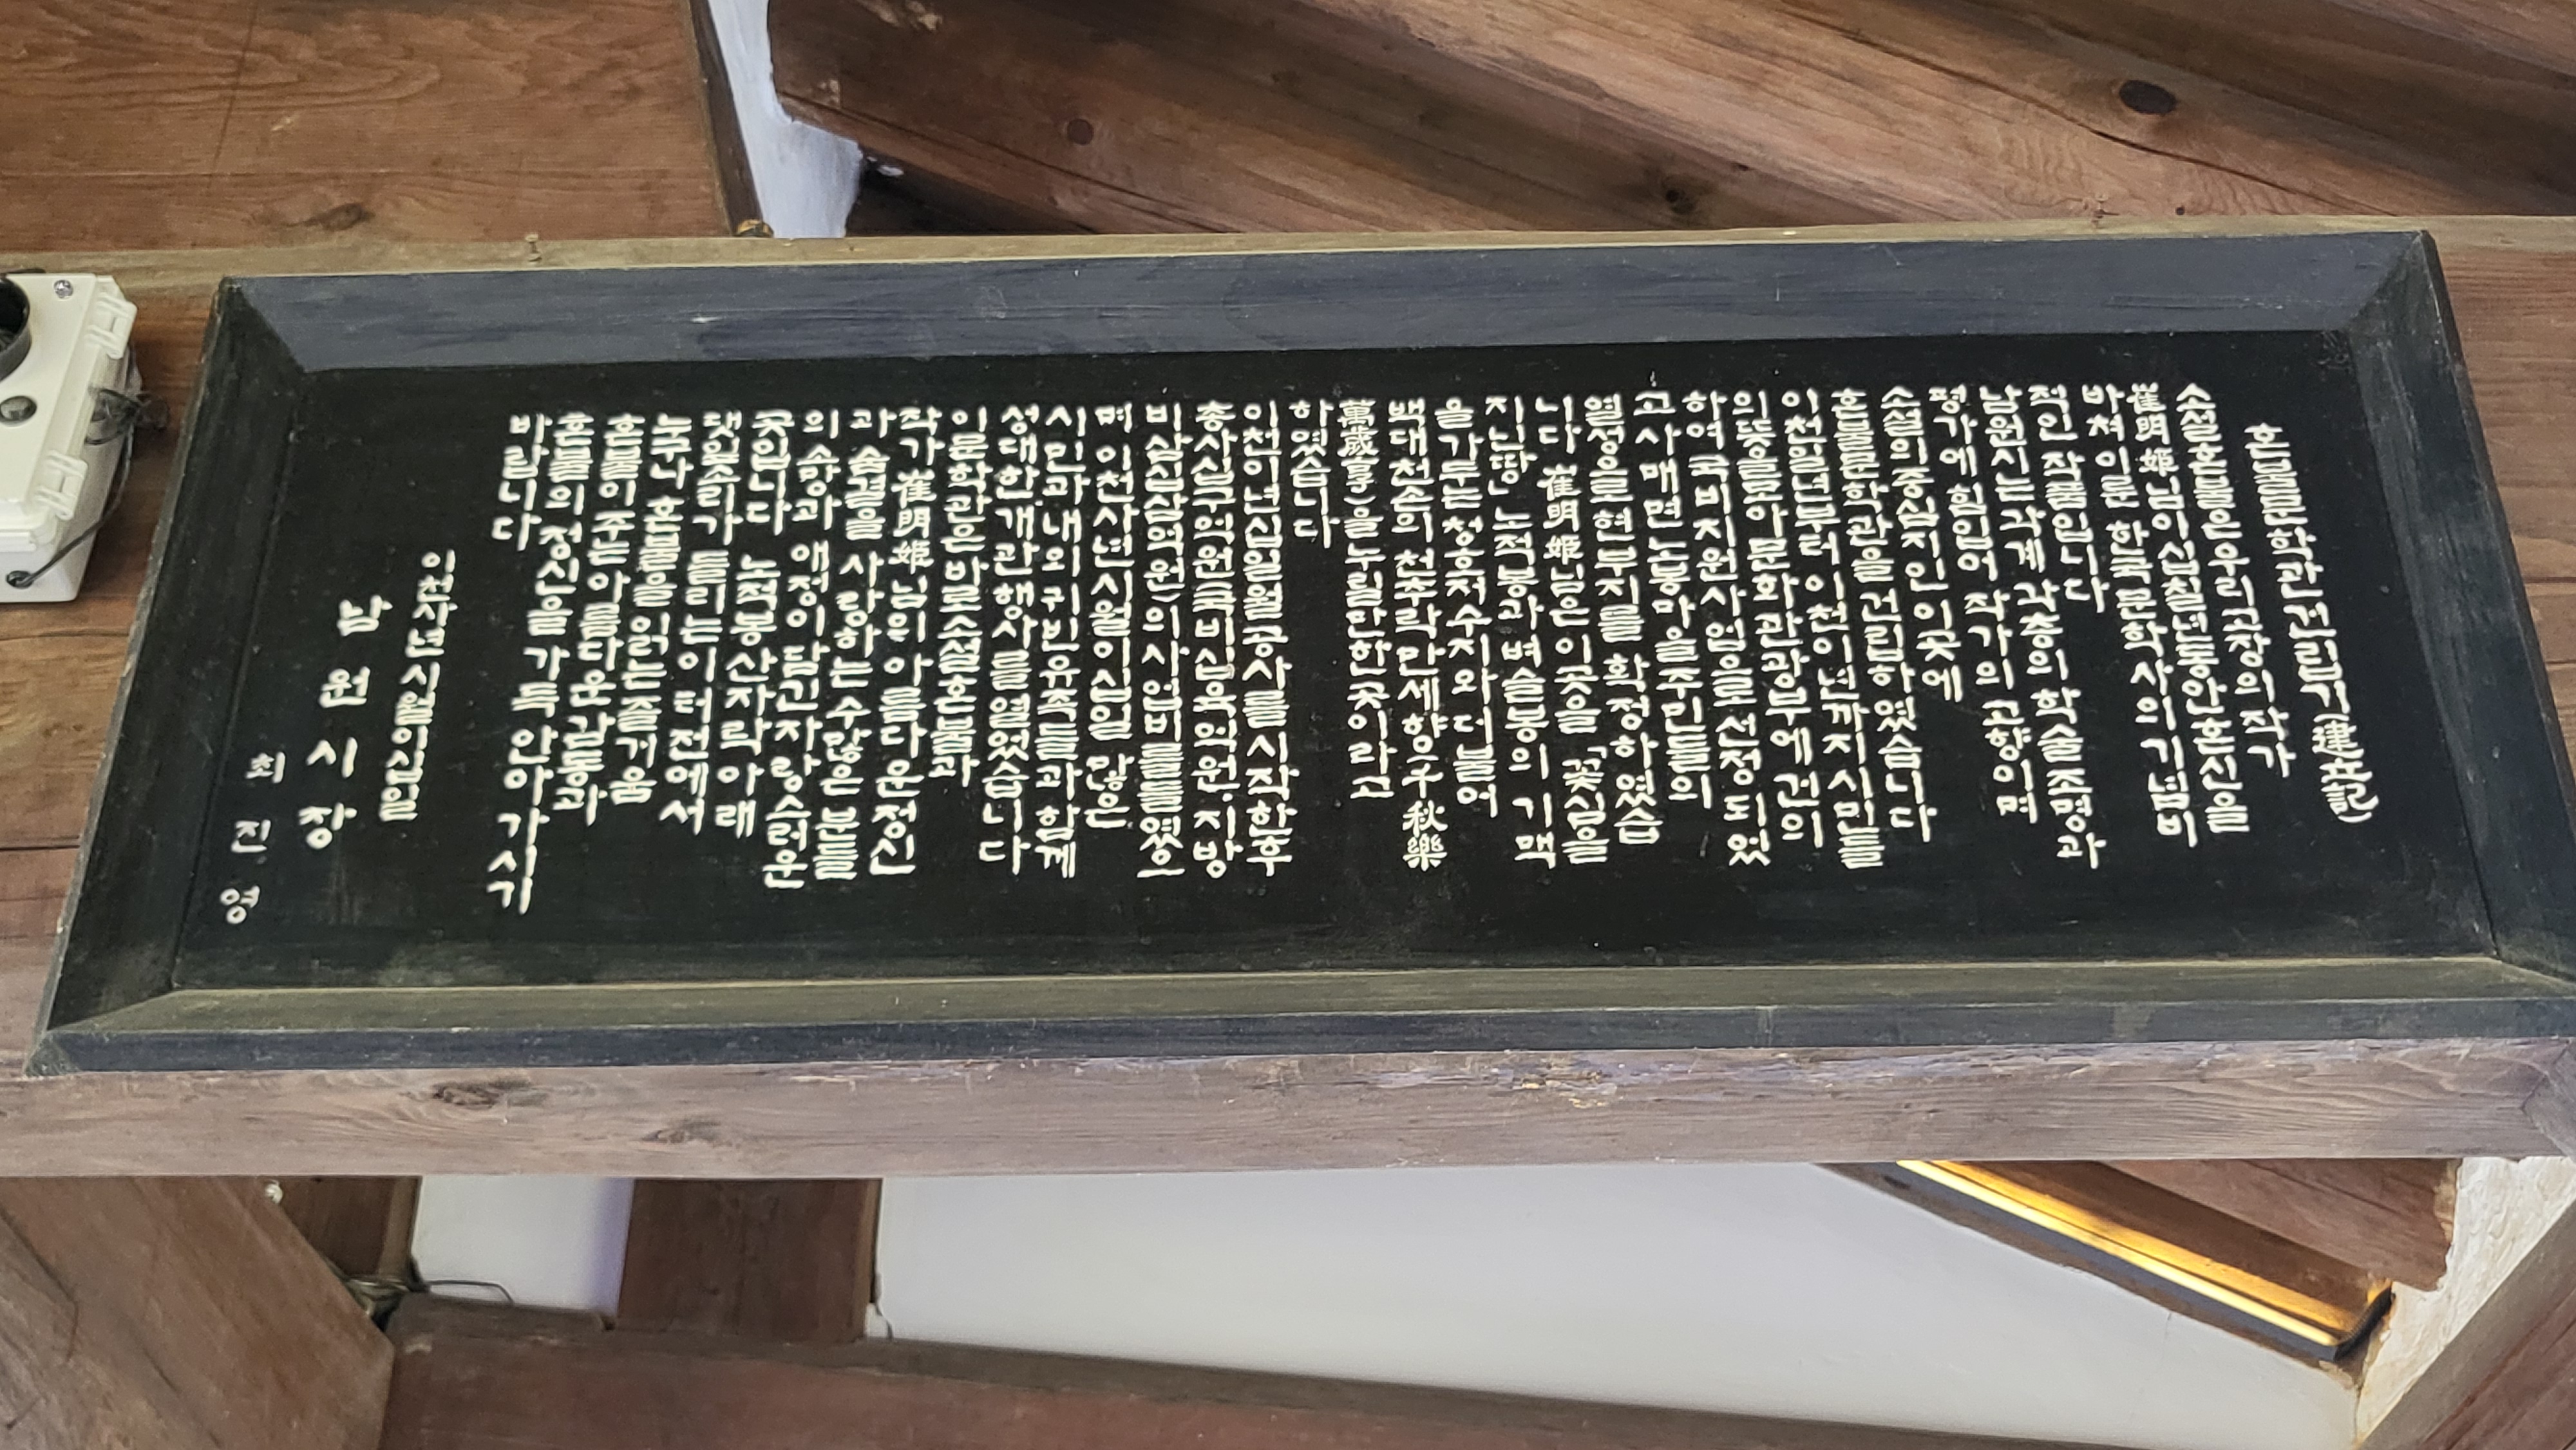 혼불문학관 건립기(建立記)
소설 혼불은 우리 고장의 작가
崔明姬님이 십칠년동안 혼신을
바쳐 이룬 한국문학사의 기념비
적인 작품입니다
남원시는 각계 각층의 학술조명과
평가에 힘입어 작가의 고향이며
소설의 중심지인 이곳에
혼불문학관을 건립하였습니다
이천일년부터 이천이년까지 시민들
의 뜻을 모아 문화관광부에 건의
하여 국비지원사업으로 선정되었
고 사매면 노봉마을 주민들의
열성으로 현부지를 확정하였습
니다 崔明姬님은 이곳을 「꽃심을
지닌 땅」 노적봉과 벼슬봉의 기맥
을 가둔 청호저수지와 더불어
백대천손의 천추락만세향(千秋樂
萬歲享)을 누릴만한 곳이라고
하였습니다
이천이년 십일월 공사를 시작한 후
총사십구억원(국비십육억원·지방
비삼십삼억원)의 사업비를 들였으
며 이천사년 시월이십일 많은
시민과 내외귀빈 유족들과 함께
성대한 개관행사를 열었습니다
이 문학관은 바로 소설 혼불과
작가 崔明姬님의 아름다운 정신
과 숨결을 사랑하는 수많은 분들
의 소망과 애정이 담긴 자랑스러운
곳입니다 노적봉 산자락 아래
댓잎소리가 들리는 이 터전에서
누구나 혼불을 읽는 즐거움
혼불이 주는 아름다운 감동과
혼불의 정신을 가득 안아 가시기
바랍니다
이천사년 시월이십일
남원시장
최진영